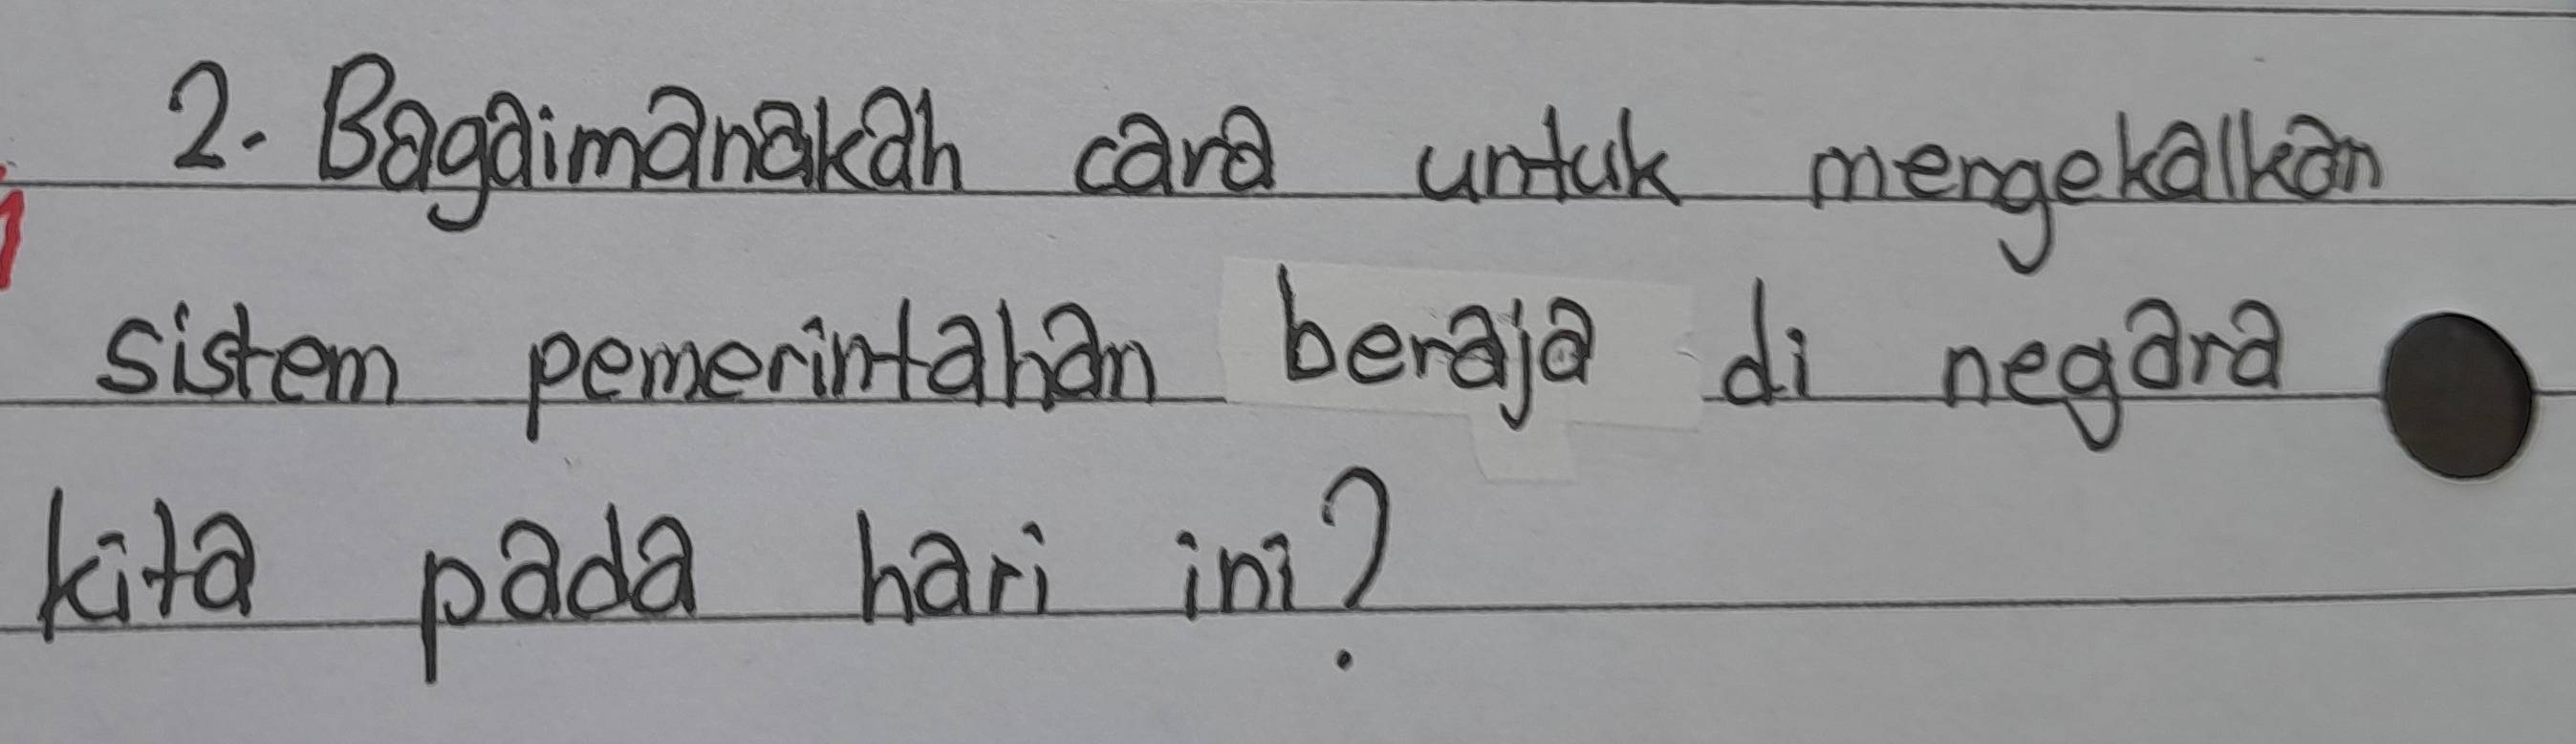 2. Bagaimanakah cara untuk mengekalkan
sistem pemerintahan beraja di negara
kita pada hari ini?